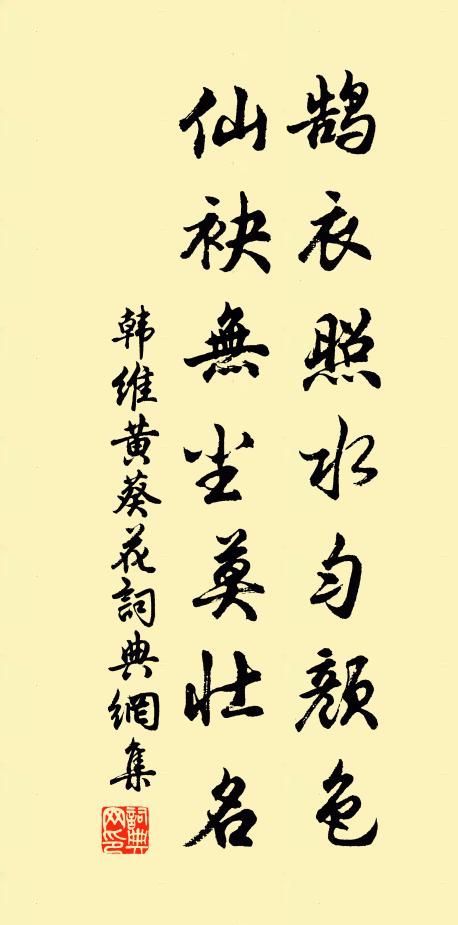 鹄衣照水匀颜色
仙袂無尘莫壮名
韩维黄葵花詞典網集
詞典网印